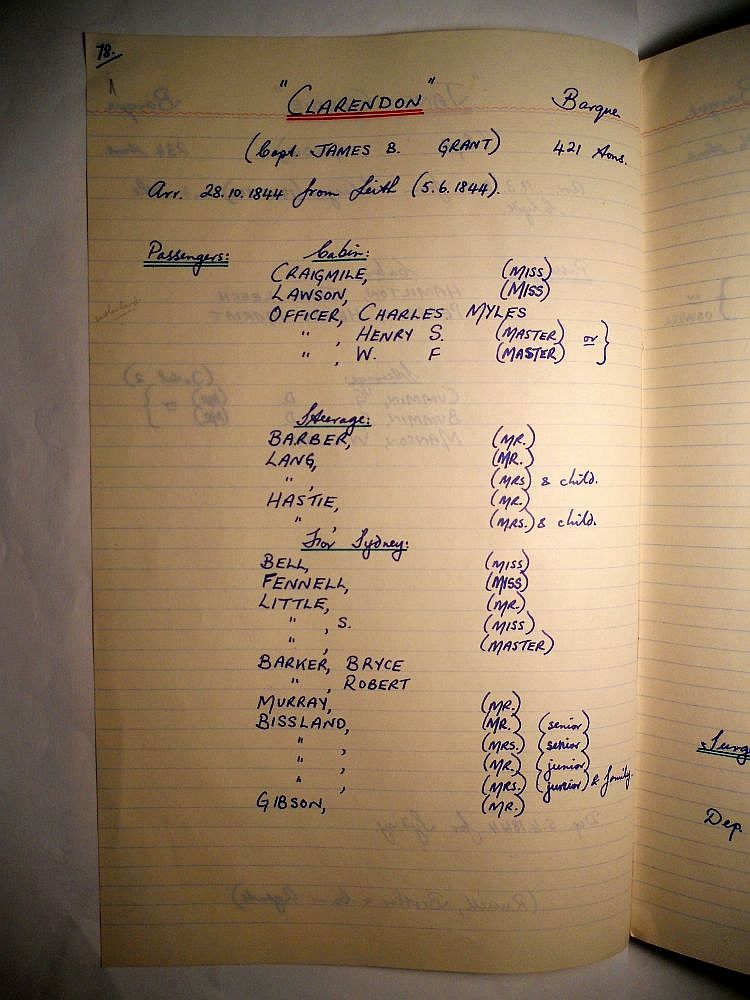 78.
"CLARENDON" Barque
(Capt. JAMES B. GRANT) 421 tons.
Arr. 28.10.1844 from Leith (5.6.1844).
Passengers: Cabin:
CRAIGMILE, (MISS)
LAWSON, (MISS)
OFFICER, CHARLES MYLES
" , HENRY S. (MASTER) or }
" , W. F (MASTER)
Steerage:
BARBER, (MR.)
LANG, (MR.)
" , (MRS) & child.
HASTIE, (MR.)
" , (MRS.) & child.
For Sydney:
BELL, (MISS)
FENNELL, (MISS)
LITTLE, (MR.)
" , S. (MISS)
" , (MASTER)
BARKER, BRYCE
" , ROBERT
MURRAY, (MR.)
BISSLAND, (MR.) (senior)
" , (MRS.) (senior)
" , (MR.) (junior)
" , (MRS.) (junior) & family.
GIBSON, (MR.)
Dep.